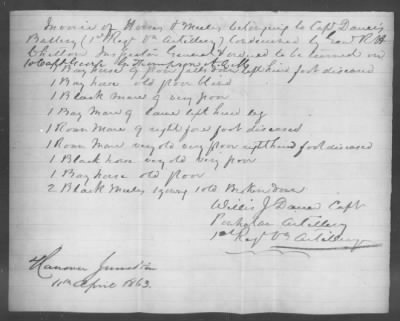 Invoice of Horses & Mules belonging to Capt Dance's
Battery (1st Regt Va Artillery) Condemned by Genl R H
Chilton Inspector General & ordered to be turned over
to Capt Geo G Thompson A.Q.M.
1 Bay horse poor left hind foot diseased
1 Bay horse old poor blind
1 Black Mare very poor
1 Bay Mare lame left hind leg
1 Roan Mare right fore foot diseased
1 Roan Mare very old very poor right hind foot diseased
1 Black horse very old very poor
1 Bay horse old poor
2 Black Mules 1 young 1 old Broken down
Willis J Dance Capt
Powhatan Artillery
1st Regt Va Artillery
Hanover Junction
April 1863.